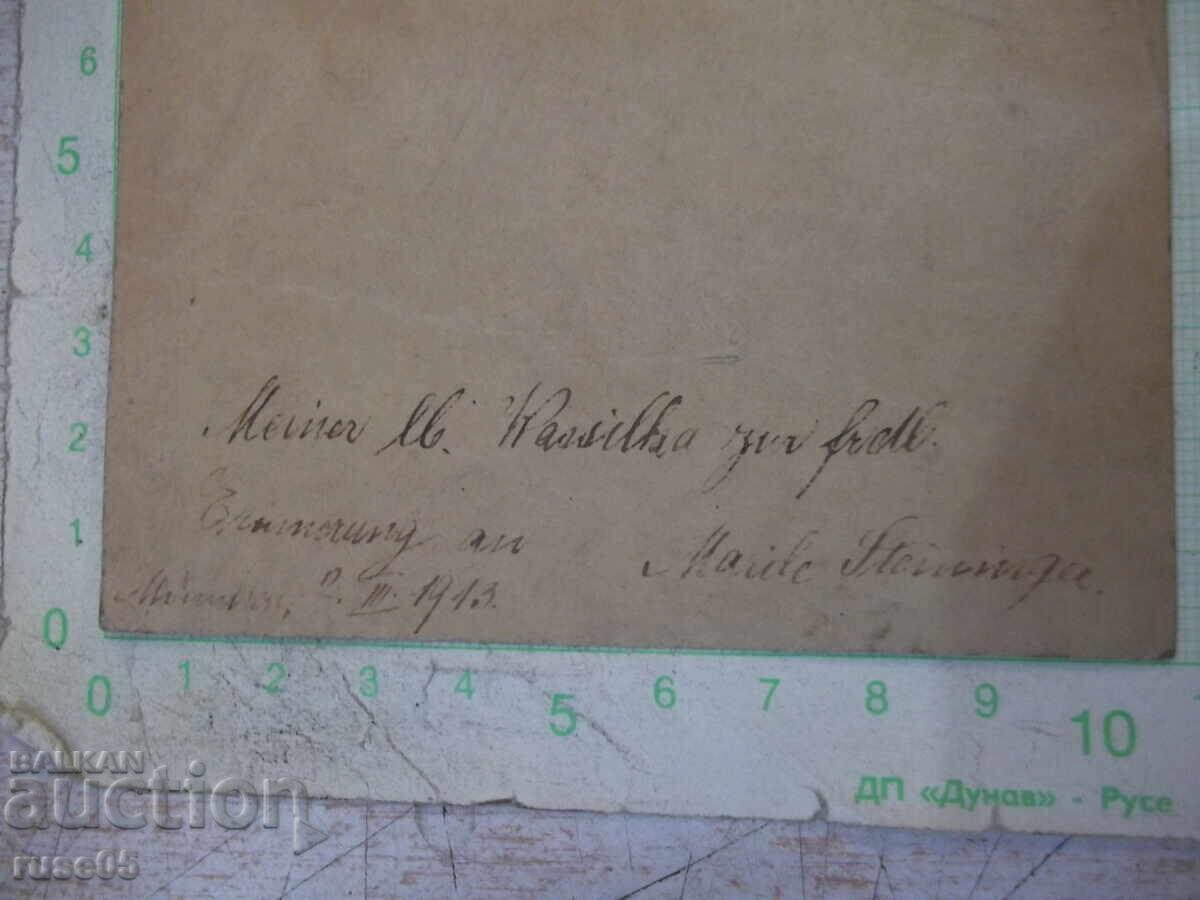 6
5
4
3
2
1
0
Meiner lb. Wassilka zur frdl.
Erinnerung an Marile Steininger.
München, III. 1913.
0 1 2 3 4 5 6 7 8 9 10
ДП «Дунав» - Русе
BALKAN
auction
ruse05